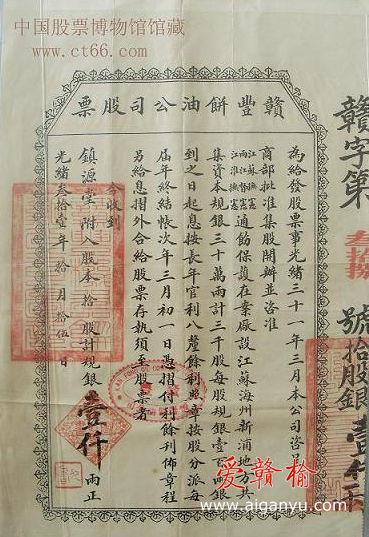 中国股票博物馆馆藏
www.ct66.com
贛豐餅油公司股票
為給發股票事光緒三十一年三月本公司咨呈
商部批准集股開辦並咨准
江蘇撫憲
兩江督憲
江淮撫憲
通飭保護在案廠設江蘇海州新浦地方共
集資本規銀三十萬兩計三千股每股規銀壹百兩銀
到之日起息按長年官利八釐餘利照章按股分派每
屆年終結帳次年三月初一日憑摺付利餘列佈章程
另給息摺外合給股票存執須至股票者
今收到
鎮源堂附入股本拾股計規銀壹仟兩正
光緒叁拾壹年拾月拾伍日
贛字第
號拾股銀壹仟
爱赣榆
www.aiganyu.com